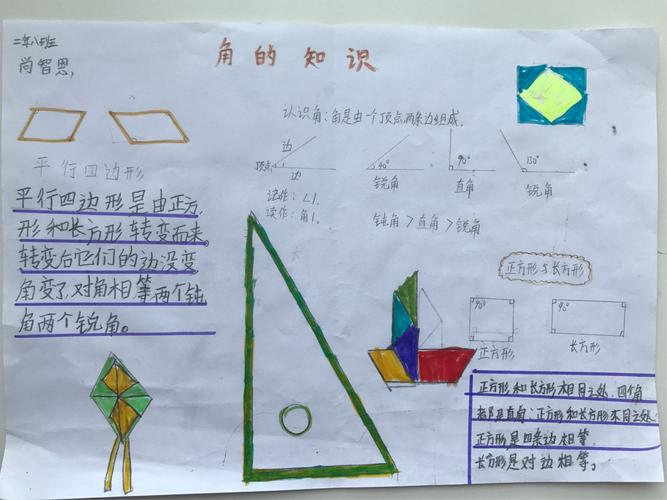 二年八班
尚智恩
角的知识
认识角:角是由一个顶点,两条边组成。
边
顶点
边
40°
锐角
90°
直角
130°
锐角
记作:∠1.
读作:角1.
钝角 > 直角 > 锐角
平行四边形
平行四边形是由正方,
形和长方形转变而来。
转变后它们的边没变
角变了,对角相等两个钝
角两个锐角。
正方形与长方形
90°
正方形
90°
长方形
正方形和长方形相目之处,四个角
都是直角;正方形和长方形不目之处
正方形是四条边相等,
长方形是对边相等。